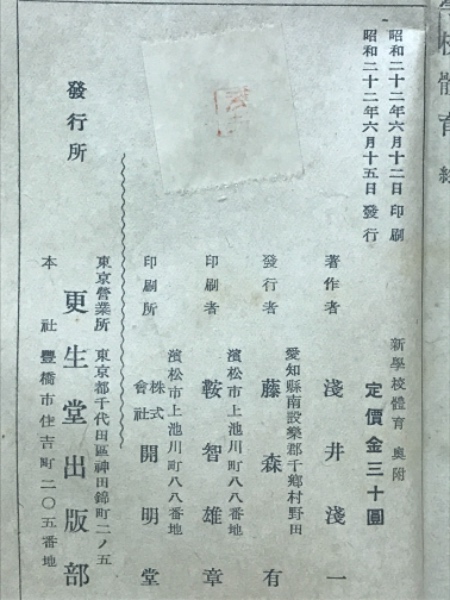 學校體育
昭和二十二年六月十二日 印刷
昭和二十二年六月十五日 發行
新學校體育 奥附
定價金三十圓
著作者 淺井淺一
愛知縣南設樂郡千鄉村野田
發行者 藤森有
濱松市上池川町八八番地
印刷者 鞍智雄章
濱松市上池川町八八番地
印刷所 株式會社 開明堂
發行所
東京營業所 東京都千代田區神田錦町二ノ五
更生堂出版部
本社 豐橋市住吉町二〇五番地